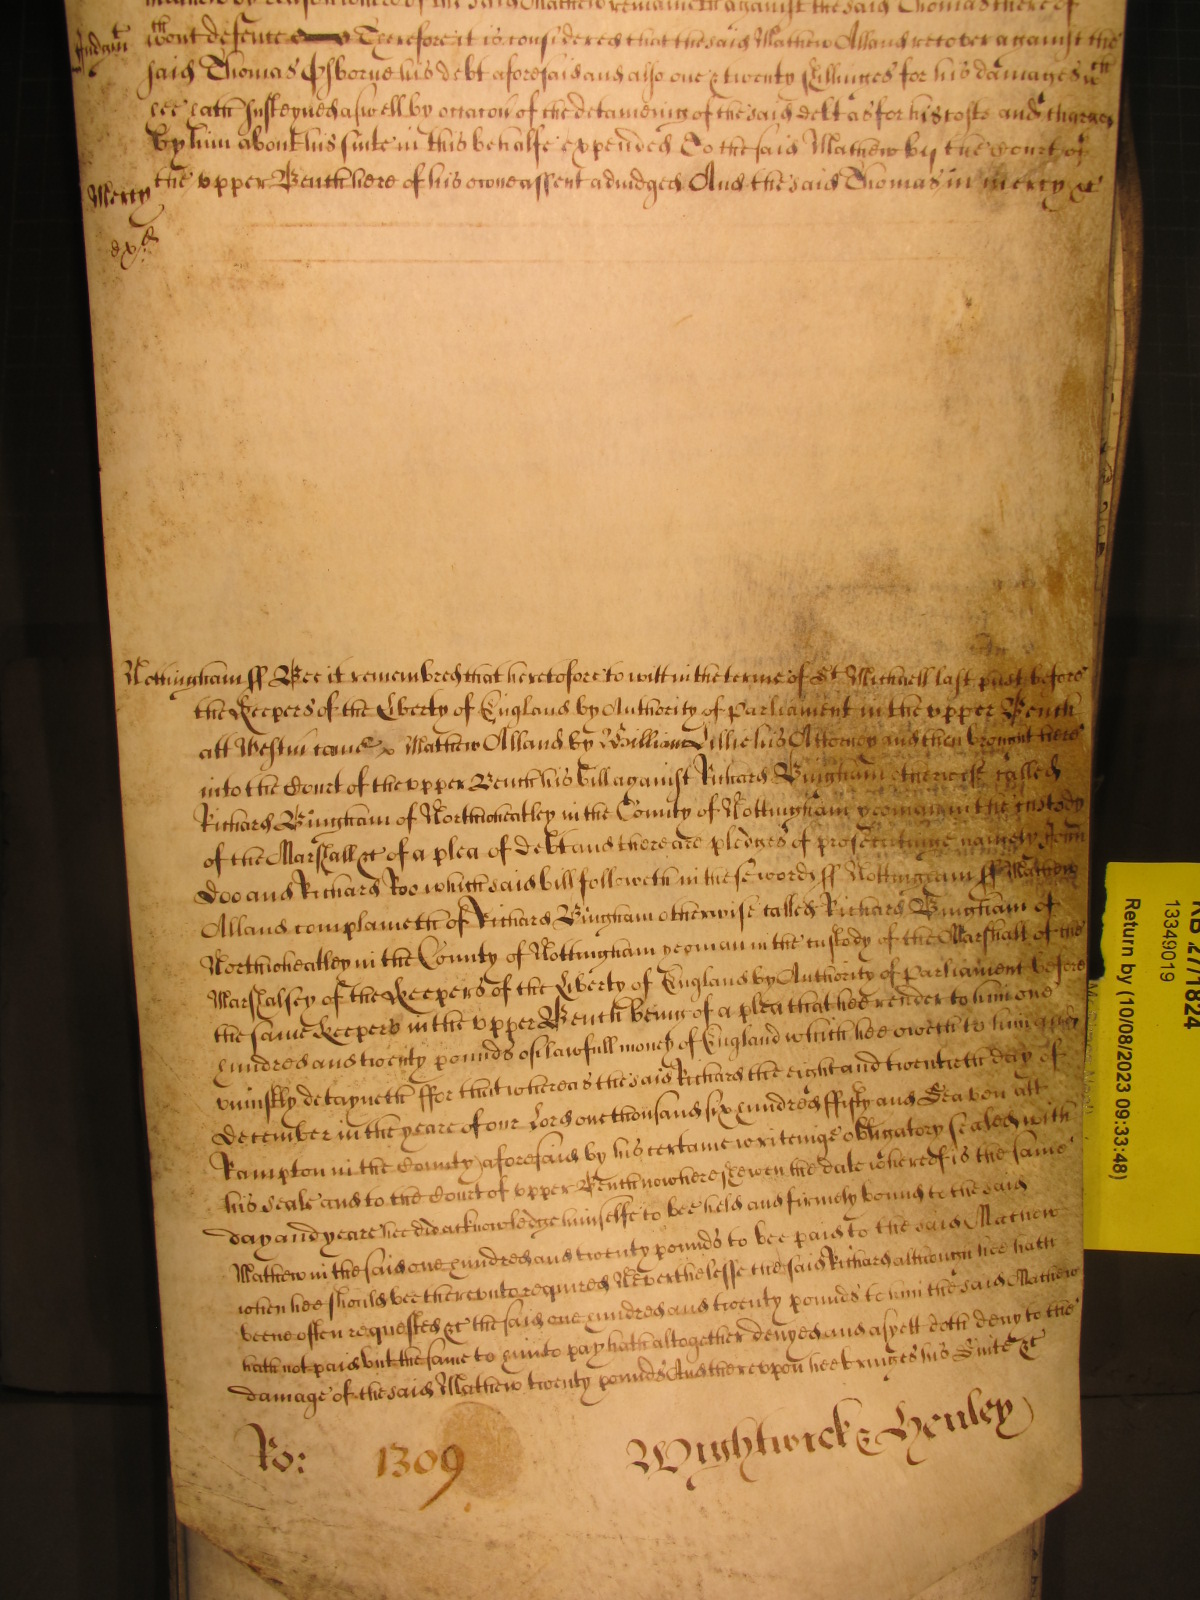 against the said Thomas there of
Judgmt wout defence Therefore it is considered that the said Mathew Alland recover against the
said Thomas Osborne his debt aforesaid and also one & twenty shillinges for his damages wch
hee hath susteyned aswell by occacon of the deteyneing of the said debt as for his costs and charges
by him about his suite in this behalfe expended To the said Mathew by the Court of
the vpper Bench here of his owne assent adiudged And the said Thomas in mercy &c
Mercy
Nottingham ss Bee it remembred that heretofore to witt in the terme of St Michaell last past before
the Keepers of the Liberty of England by Authority of Parliament in the vpper Bench
att Westm came Mathew Alland by William Lillie his Attorney and then brought here
into the Court of the vpper Bench his bill against Richard Bingham otherwise called
Richard Bingham of Northwheatley in the County of Nottingham yeoman in the custody
of the Marshall &c of a plea of debt and there are pledges of prosecuteinge namely John
Doo and Richard Roo which said bill followeth in these words ss Nottingham ss Mathew
Alland complaineth of Richard Bingham otherwise called Richard Bingham of
Northwheatley in the County of Nottingham yeoman in the custody of the Marshall of the
Marshalsey of the Keepers of the Liberty of England by Authority of Parliament before
the same Keepers in the vpper Bench being of a plea that hee render to him one
hundred and twenty pounds of lawfull money of England which hee oweth to him and
vniustly detayneth ffor that whereas the said Richard the eight and twentieth day of
December in the yeare of our Lord one thousand six hundred ffifty and Seaven att
Rampton in the County aforesaid by his certaine writeinge obligatory sealed with
his seale and to the Court of vpper Bench now here shewen the date whereof is the same
day and yeare hee did acknowledge himselfe to bee held and firmely bound to the said
Mathew in the said one hundred and twenty pounds to bee paid to the said Mathew
when hee should bee therevnto required Neverthelesse the said Richard although hee hath
beene often requested &c the said one hundred and twenty pounds to him the said Mathew
hath not paid but the same to him to pay hath altogether denyed and as yett doth deny to the
damage of the said Mathew twenty pounds And therevpon hee bringes his Suite &c
Ro: 1309 Wightwick & Henley
KB 27/1824
13349019
Return by (10/08/2023 09:33:48)